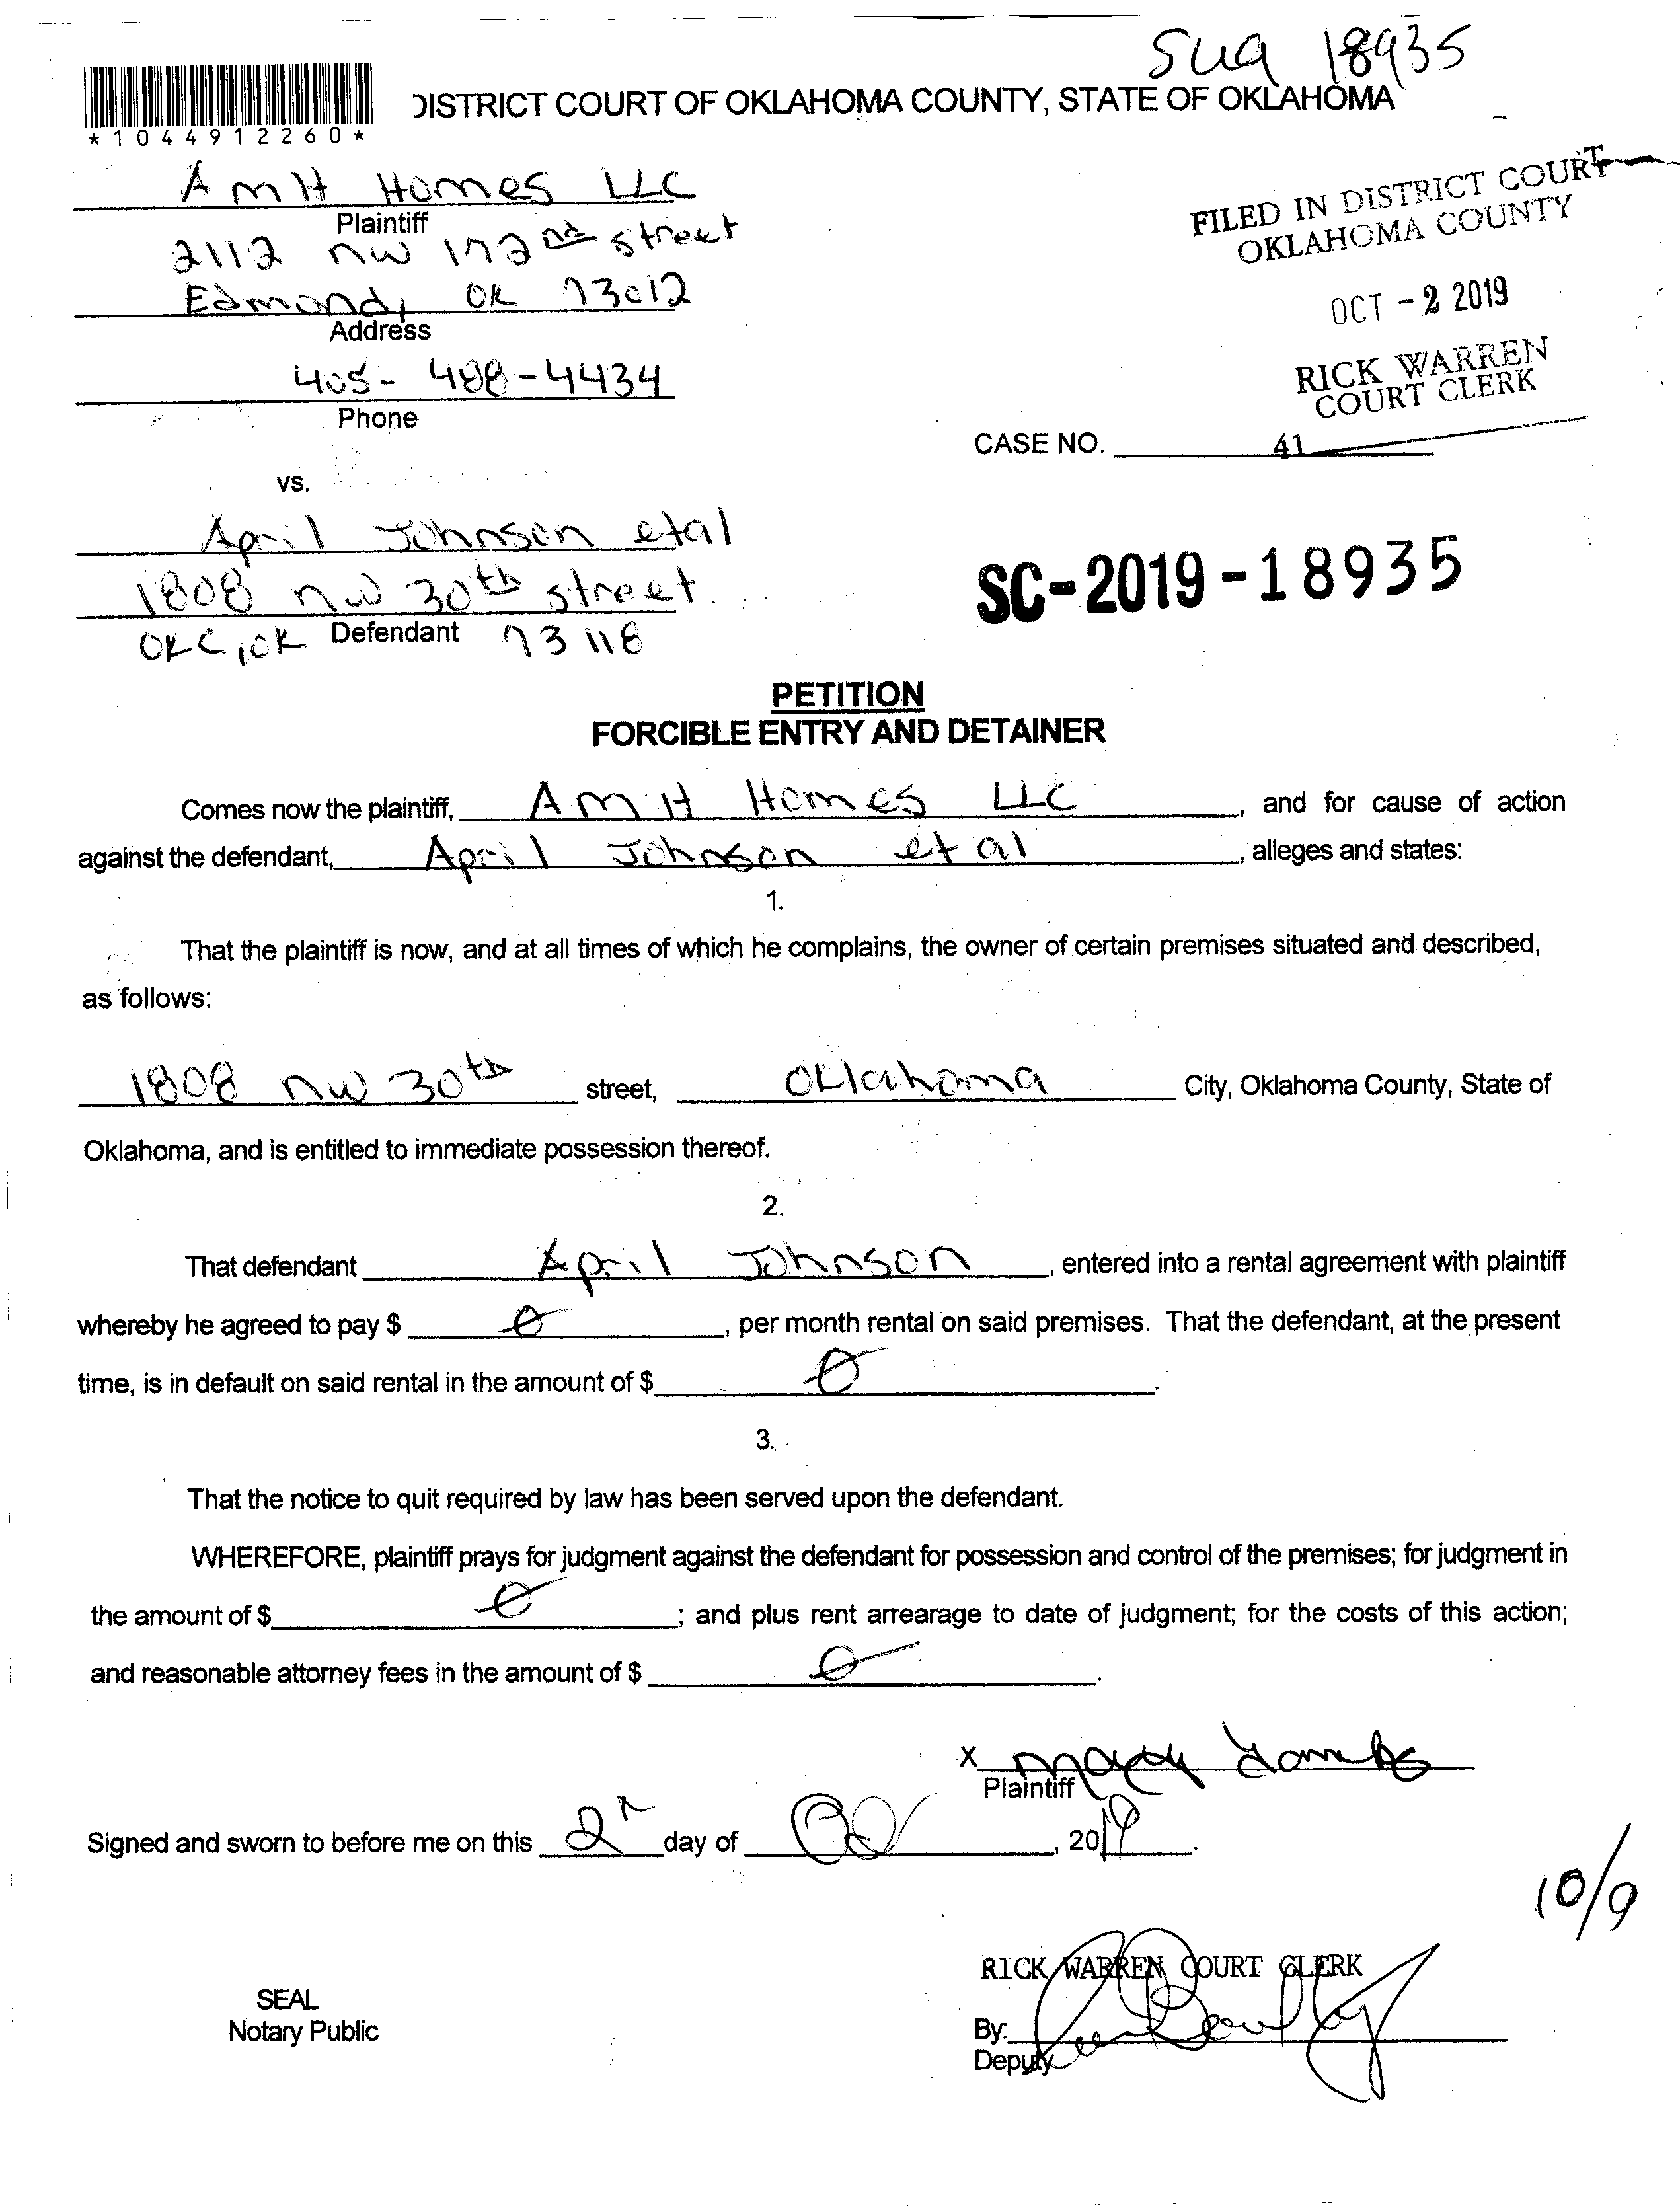 SUq 18935
*1044912260*
DISTRICT COURT OF OKLAHOMA COUNTY, STATE OF OKLAHOMA
FILED IN DISTRICT COURT
OKLAHOMA COUNTY
OCT -2 2019
RICK WARREN
COURT CLERK
AMH Homes LLC
Plaintiff
2112 NW 172nd street
Edmond, OK 73012
Address
405-488-4434
Phone
CASE NO. 41
vs.
April Johnson etal
1808 NW 30th street
Defendant
OKC, OK 73118
SC-2019-18935
PETITION
FORCIBLE ENTRY AND DETAINER
Comes now the plaintiff, AMH Homes LLC, and for cause of action
against the defendant, April Johnson et al, alleges and states:
1.
That the plaintiff is now, and at all times of which he complains, the owner of certain premises situated and described,
as follows:
1808 NW 30th street, Oklahoma City, Oklahoma County, State of
Oklahoma, and is entitled to immediate possession thereof.
2.
That defendant April Johnson, entered into a rental agreement with plaintiff
whereby he agreed to pay $ 0, per month rental on said premises. That the defendant, at the present
time, is in default on said rental in the amount of $ 0.
3.
That the notice to quit required by law has been served upon the defendant.
WHEREFORE, plaintiff prays for judgment against the defendant for possession and control of the premises; for judgment in
the amount of $ 0; and plus rent arrearage to date of judgment; for the costs of this action;
and reasonable attorney fees in the amount of $ 0.
X
Plaintiff
Signed and sworn to before me on this 2n day of, 2019.
10/9
RICK WARREN COURT CLERK
SEAL
Notary Public
By:
Deputy